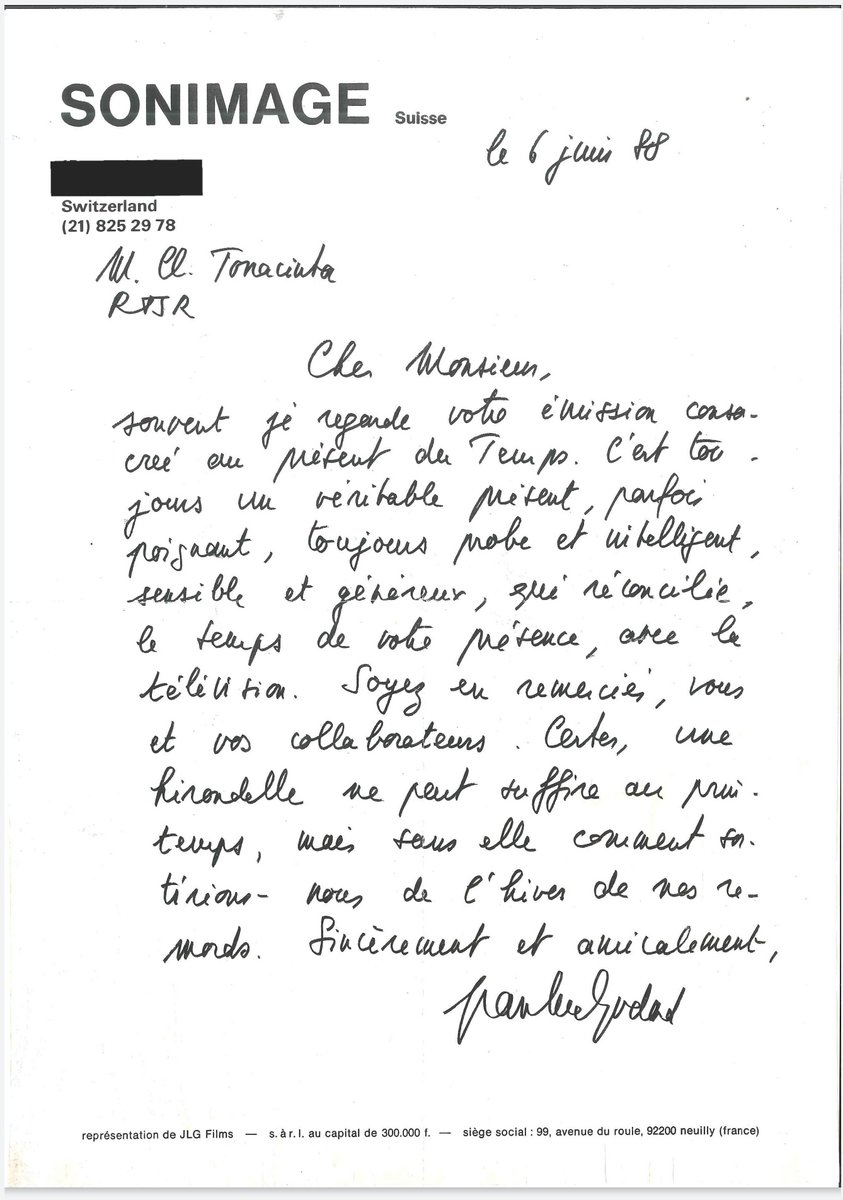 SONIMAGE Suisse
le 6 juin 88
Switzerland
(21) 825 29 78
M. Cl. Tonacinta
RTSR
Cher Monsieur,
souvent je regarde votre émission consa-
creé au présent du Temps. C'est tou -
jours un véritable présent, parfois
poignant, toujours probe et intelligent,
sensible et généreux, qui réconcilie,
le temps de votre présence, avec la
télévision. Soyez en remerciés, vous
et vos collaborateurs. Certes, une
hirondelle ne peut suffire au prin-
temps, mais sans elle comment so-
tirions-nous de l'hiver de nos re-
mords. Sincèrement et amicalement,
Jean Luc Godard
représentation de JLG Films — s. à r. l. au capital de 300.000 f. — siège social : 99, avenue du roule, 92200 neuilly (france)